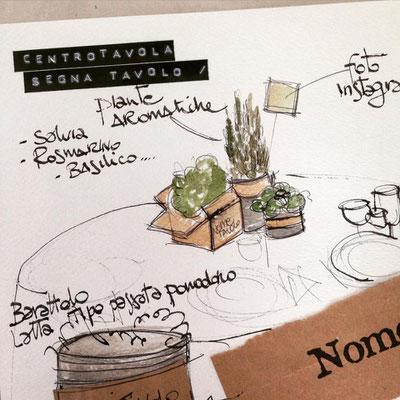 CENTROTAVOLA
SEGNA TAVOLO /
piante
AROMATiche
- SALVIA
- ROSMARINO
- BASILICO....
foto
instagra
NOME
TAVOLO
Barattolo
Latta tipo passata pomodoro
Nome